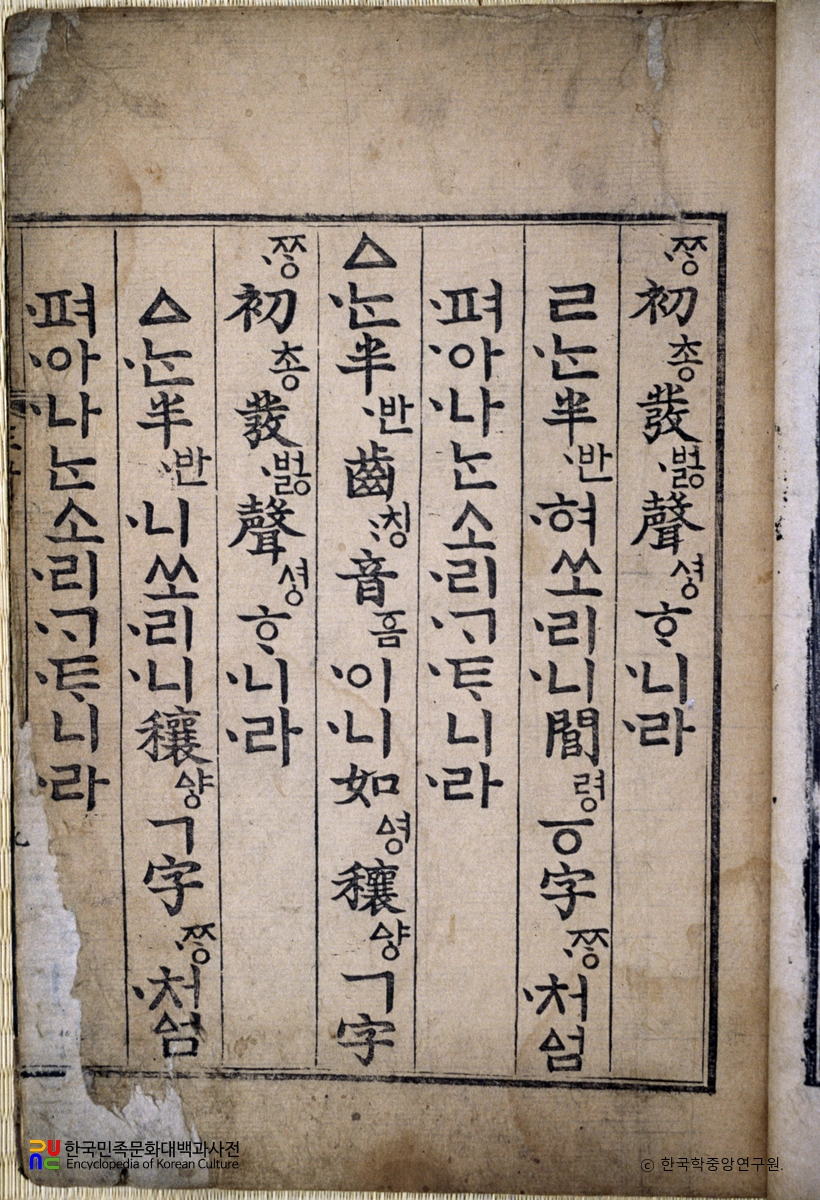 ᄍᆞᆼ初총發벓〮聲셩ᄒᆞ니〮라〮
ㄹᄂᆞᆫ〮半반〮혀〮쏘리〮니〮閭령ᅙ字ᄍᆞᆼ〮처〮ᅀᅥᆷ
펴〮아〮나〮ᄂᆞᆫ소리〮ᄀᆞ〮ᄐᆞ〮니〮라〮
ㅿᄂᆞᆫ〮半반〮齒칭〯音ᅙᅳᆷ이〮니〮如ᅀᅧᆼ穰ᅀᅣᇰㄱ字
ᄍᆞᆼ初총發벓〮聲셩ᄒᆞ니〮라〮
ㅿᄂᆞᆫ〮半반〮니〮쏘리〮니〮穰ᅀᅣᇰㄱ字ᄍᆞᆼ〮처〮ᅀᅥᆷ
펴〮아〮나〮ᄂᆞᆫ소리〮ᄀᆞ〮ᄐᆞ〮니〮라〮
한국민족문화대백과사전
Encyclopedia of Korean Culture
ⓒ 한국학중앙연구원.